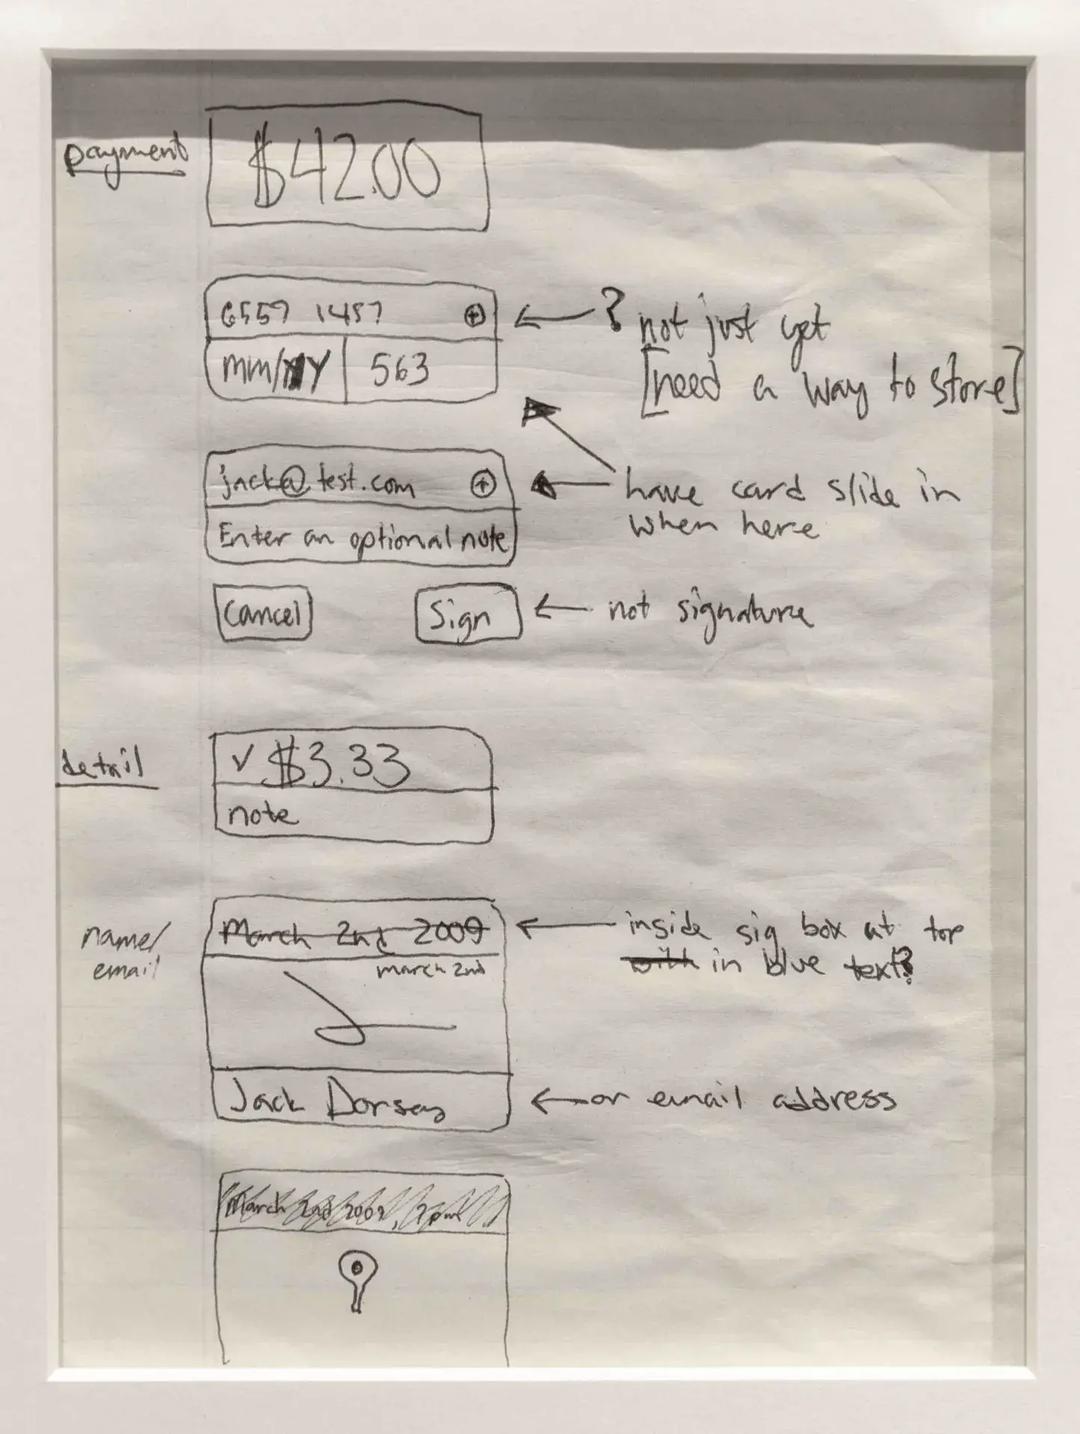 payment
$42.00
6557 1457 +
mm/YY 563
? not just yet
[need a way to store]
jack@test.com +
Enter an optional note
have card slide in
when here
Cancel
Sign
not signature
detail
✓ $3.33
note
name/
email
March 2nd 2009
march 2nd
inside sig box at top
with in blue text?
Jack Dorsey
or email address
March 2nd 2009,